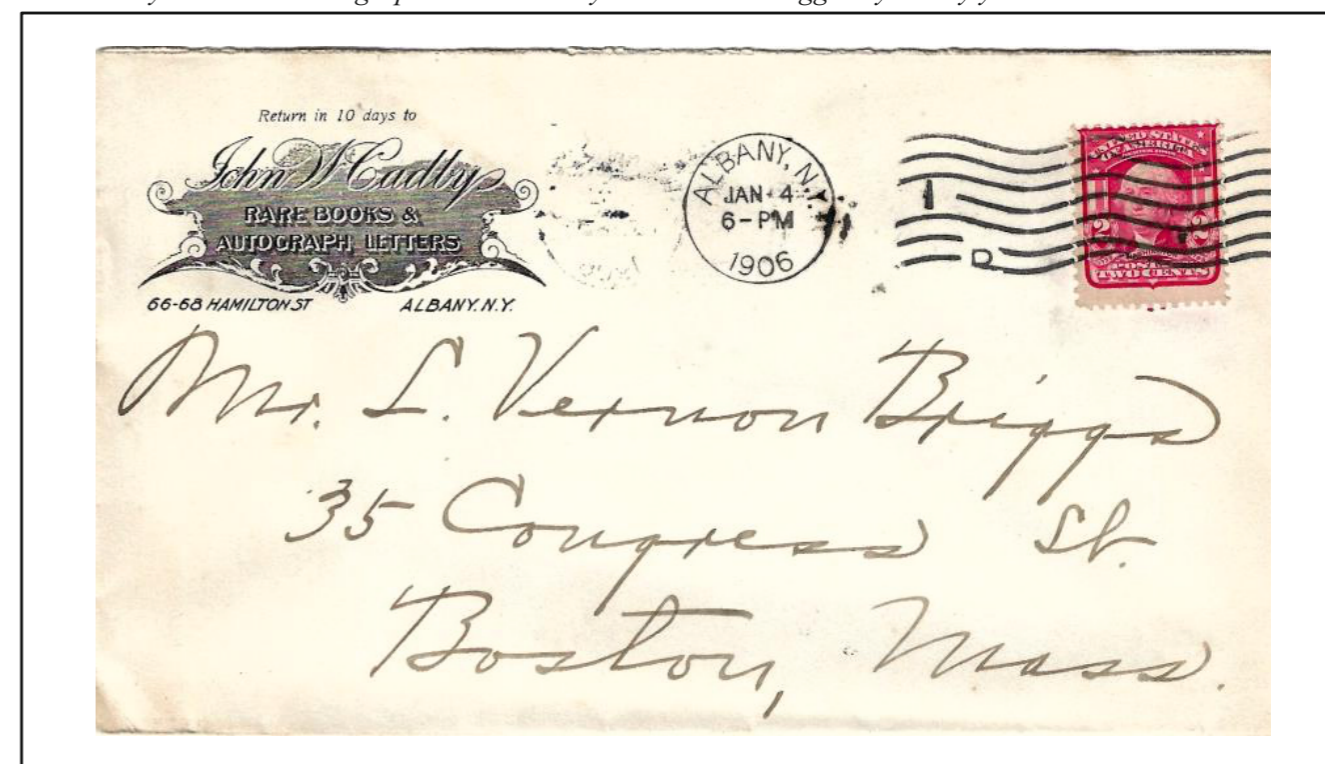 Return in 10 days to
John W Cadby
RARE BOOKS &
AUTOGRAPH LETTERS
66-68 HAMILTON ST ALBANY. N.Y.
ALBANY, N.Y.
JAN 4
6-PM
1906
1
D
UNITED STATES
OF AMERICA
2 2
POSTAGE
TWO CENTS
Mr. L. Vernon Briggs
35 Congress St.
Boston, Mass.